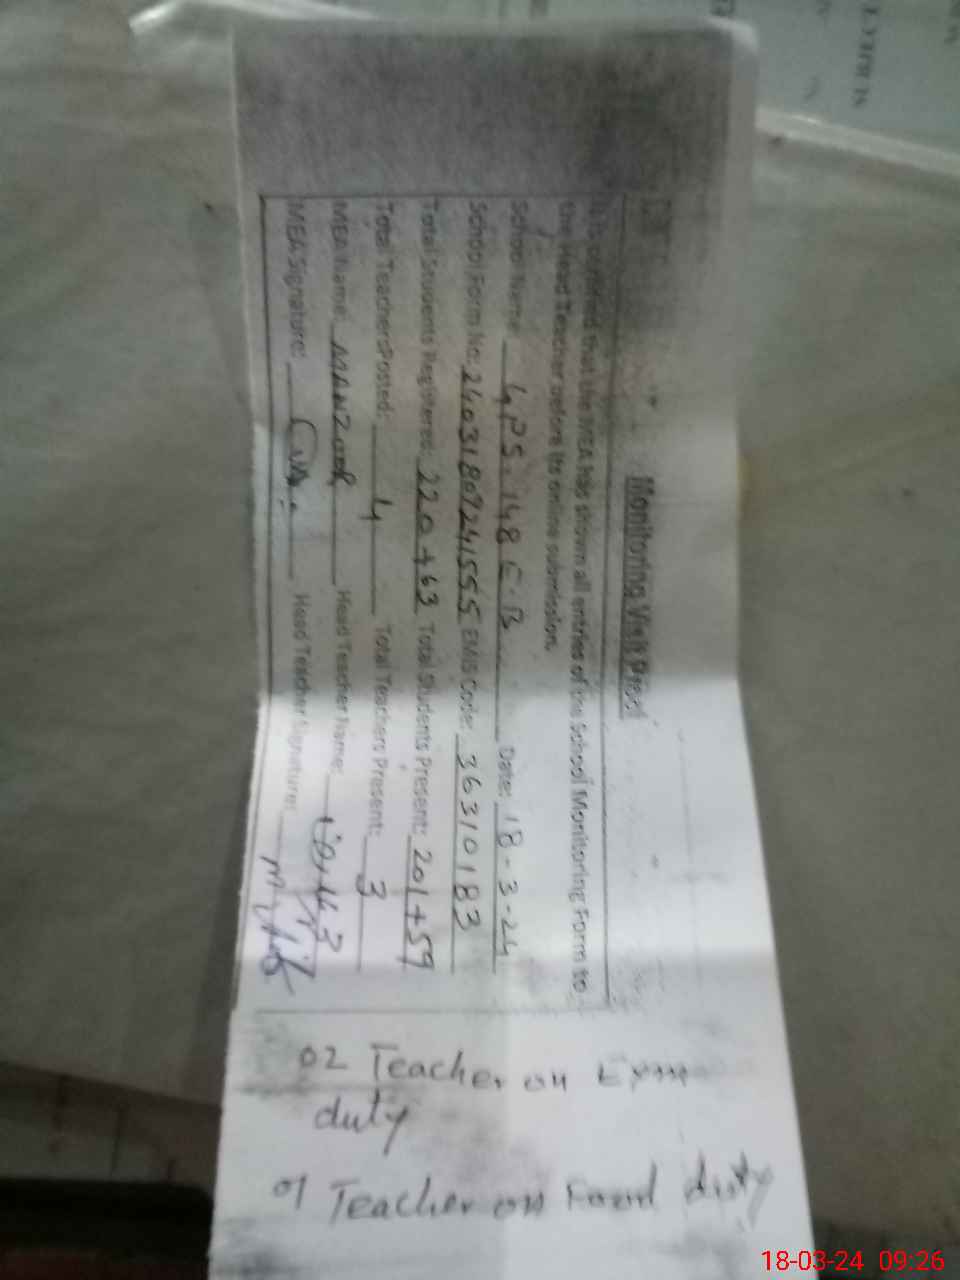 Monitoring Visit Proof
It is certified that the MEA has shown all entries of the School Monitoring Form to
the Head Teacher before its online submission.
School Name: GPS. 148 E-B Date: 18-3-24
School Form No: 24031807241555 EMIS Code: 36310183
Total Students Registered: 220+63 Total Students Present: 201+59
Total Teachers Posted: 4 Total Teachers Present: 3
MEA Name: MANZOOR Head Teacher Name:
MEA Signature: Head Teacher Signature:
02 Teacher on Exam
duty
01 Teacher on Food duty
18-03-24 09:26